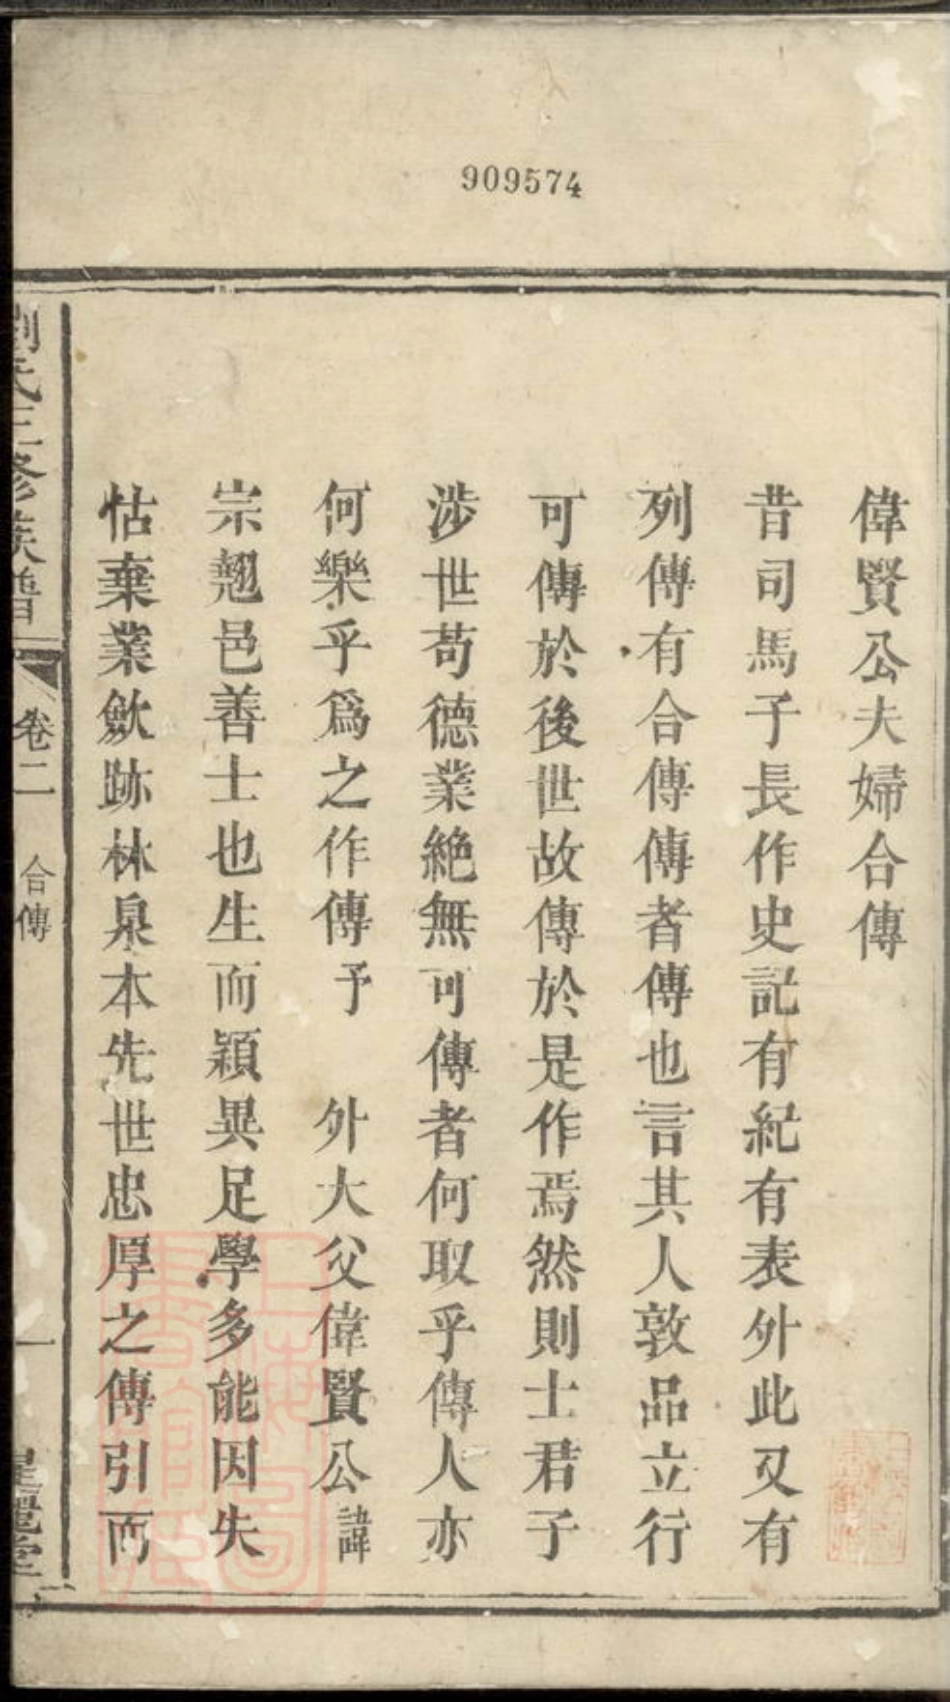 909574
偉賢公夫婦合傳
昔司馬子長作史記有紀有表外此又有
列傳有合傳傳者傳也言其人敦品立行
可傳於後世故傳於是作焉然則士君子
涉世苟德業絶無可傳者何取乎傳人亦
何樂乎爲之作傳予　外大父偉賢公諱
宗翹邑善士也生而穎異足學多能因失
怙棄業歛跡林泉本先世忠厚之傳引而
劉氏三修族譜
卷二
合傳
一